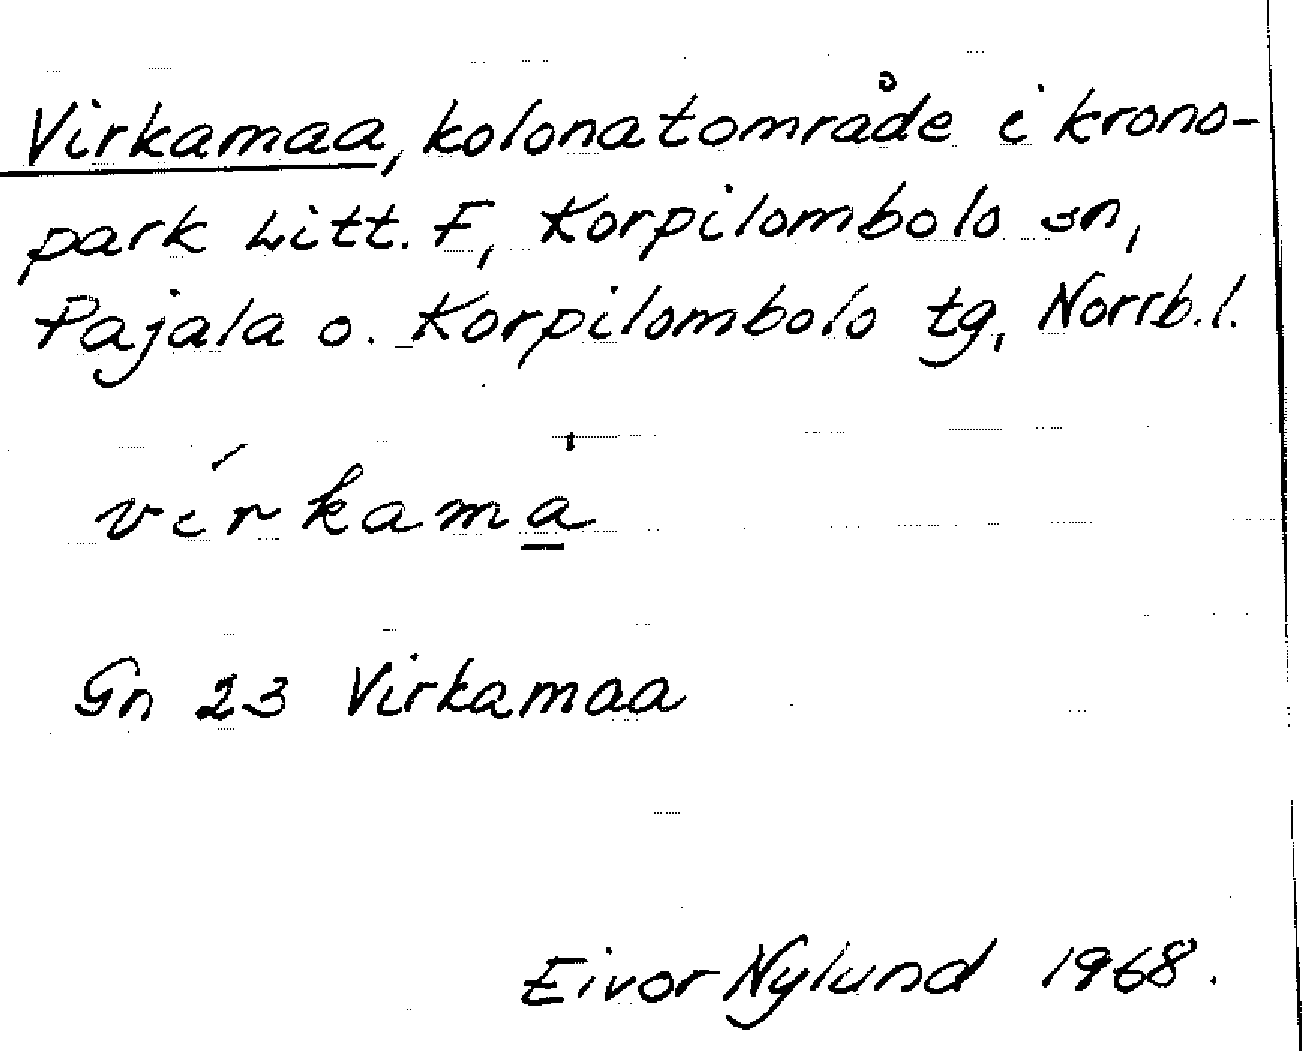 Virkamaa, kolonatområde i krono-
park Litt. F, Korpilombolo sn,
Pajala o. Korpilombolo tg, Norrb.l.
vírkama̲̍
Gn 23 Virkamaa
Eivor Nylund 1968.